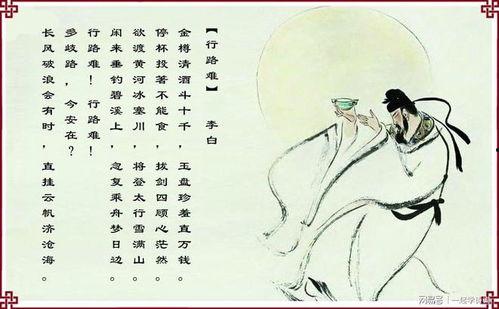 【行路难】
李白
金樽清酒斗十千，玉盘珍羞直万钱。
停杯投著不能食，拔剑四顾心茫然。
欲渡黄河冰塞川，将登太行雪满山。
闲来垂钓碧溪上，忽复乘舟梦日边。
行路难！行路难！
多歧路，今安在？
长风破浪会有时，直挂云帆济沧海。
网易号